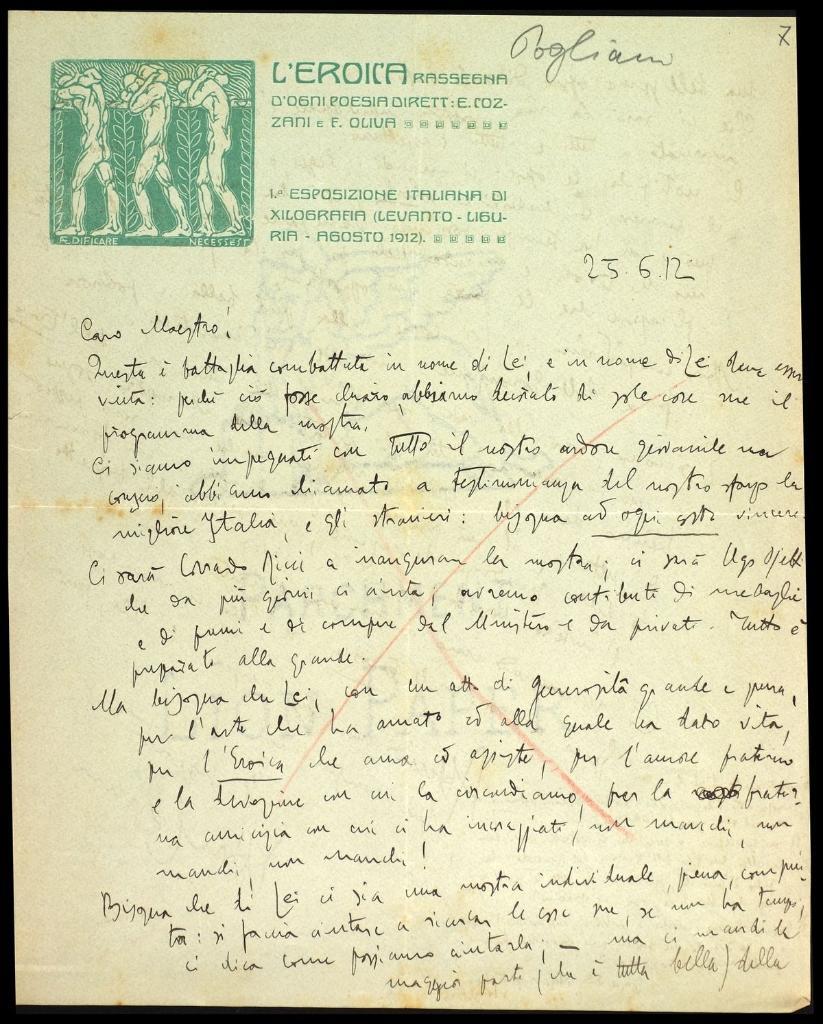 7
Pogliani
L'EROICA RASSEGNA
D'OGNI POESIA DIRETT: E. COZ-
ZANI E F. OLIVA
I.ª ESPOSIZIONE ITALIANA DI
XILOGRAFIA (LEVANTO - LIGU-
RIA - AGOSTO 1912).
ÆDIFICARE NECESSEST
25.6.12
Caro Maestro!
Questa è battaglia combattuta in nome di Lei, e in nome di Lei deve esser
vinta: perché ciò fosse chiaro abbiamo decorato di sole cose sue il
programma della mostra.
Ci siamo impegnati con tutto il nostro ardore giovanile nel
abbiamo chiamato a testimonianza del nostro sforzo la
migliore Italia, e gli stranieri: bisogna ad ogni costo vincere.
Ci sarà Corrado Ricci a inaugurare la mostra; ci sarà Ugo Ojetti
che da più giorni ci aiuta; avremo contributi di medaglie
e di premi e di compere dal Ministero e da privati. Tutto è
preparato alla grande.
Ma bisogna che Lei, con un atto di generosità grande e pura,
per l'arte che ha amato ed alla quale ha dato vita,
per l'Eroica che ama ed assiste, per l'amore fraterno
e la devozione con cui La circondiamo, per la frater-
na amicizia con cui ci ha incoraggiati, non manchi, non
manchi, non manchi!
Bisogna che di Lei ci sia una mostra individuale, piena, compiu-
ta: si faccia aiutare a ricercar le cose sue, se non ha tempo;
ci dica come possiamo aiutarla; — ma ci mandi la
maggior parte (che è tutta bella) della